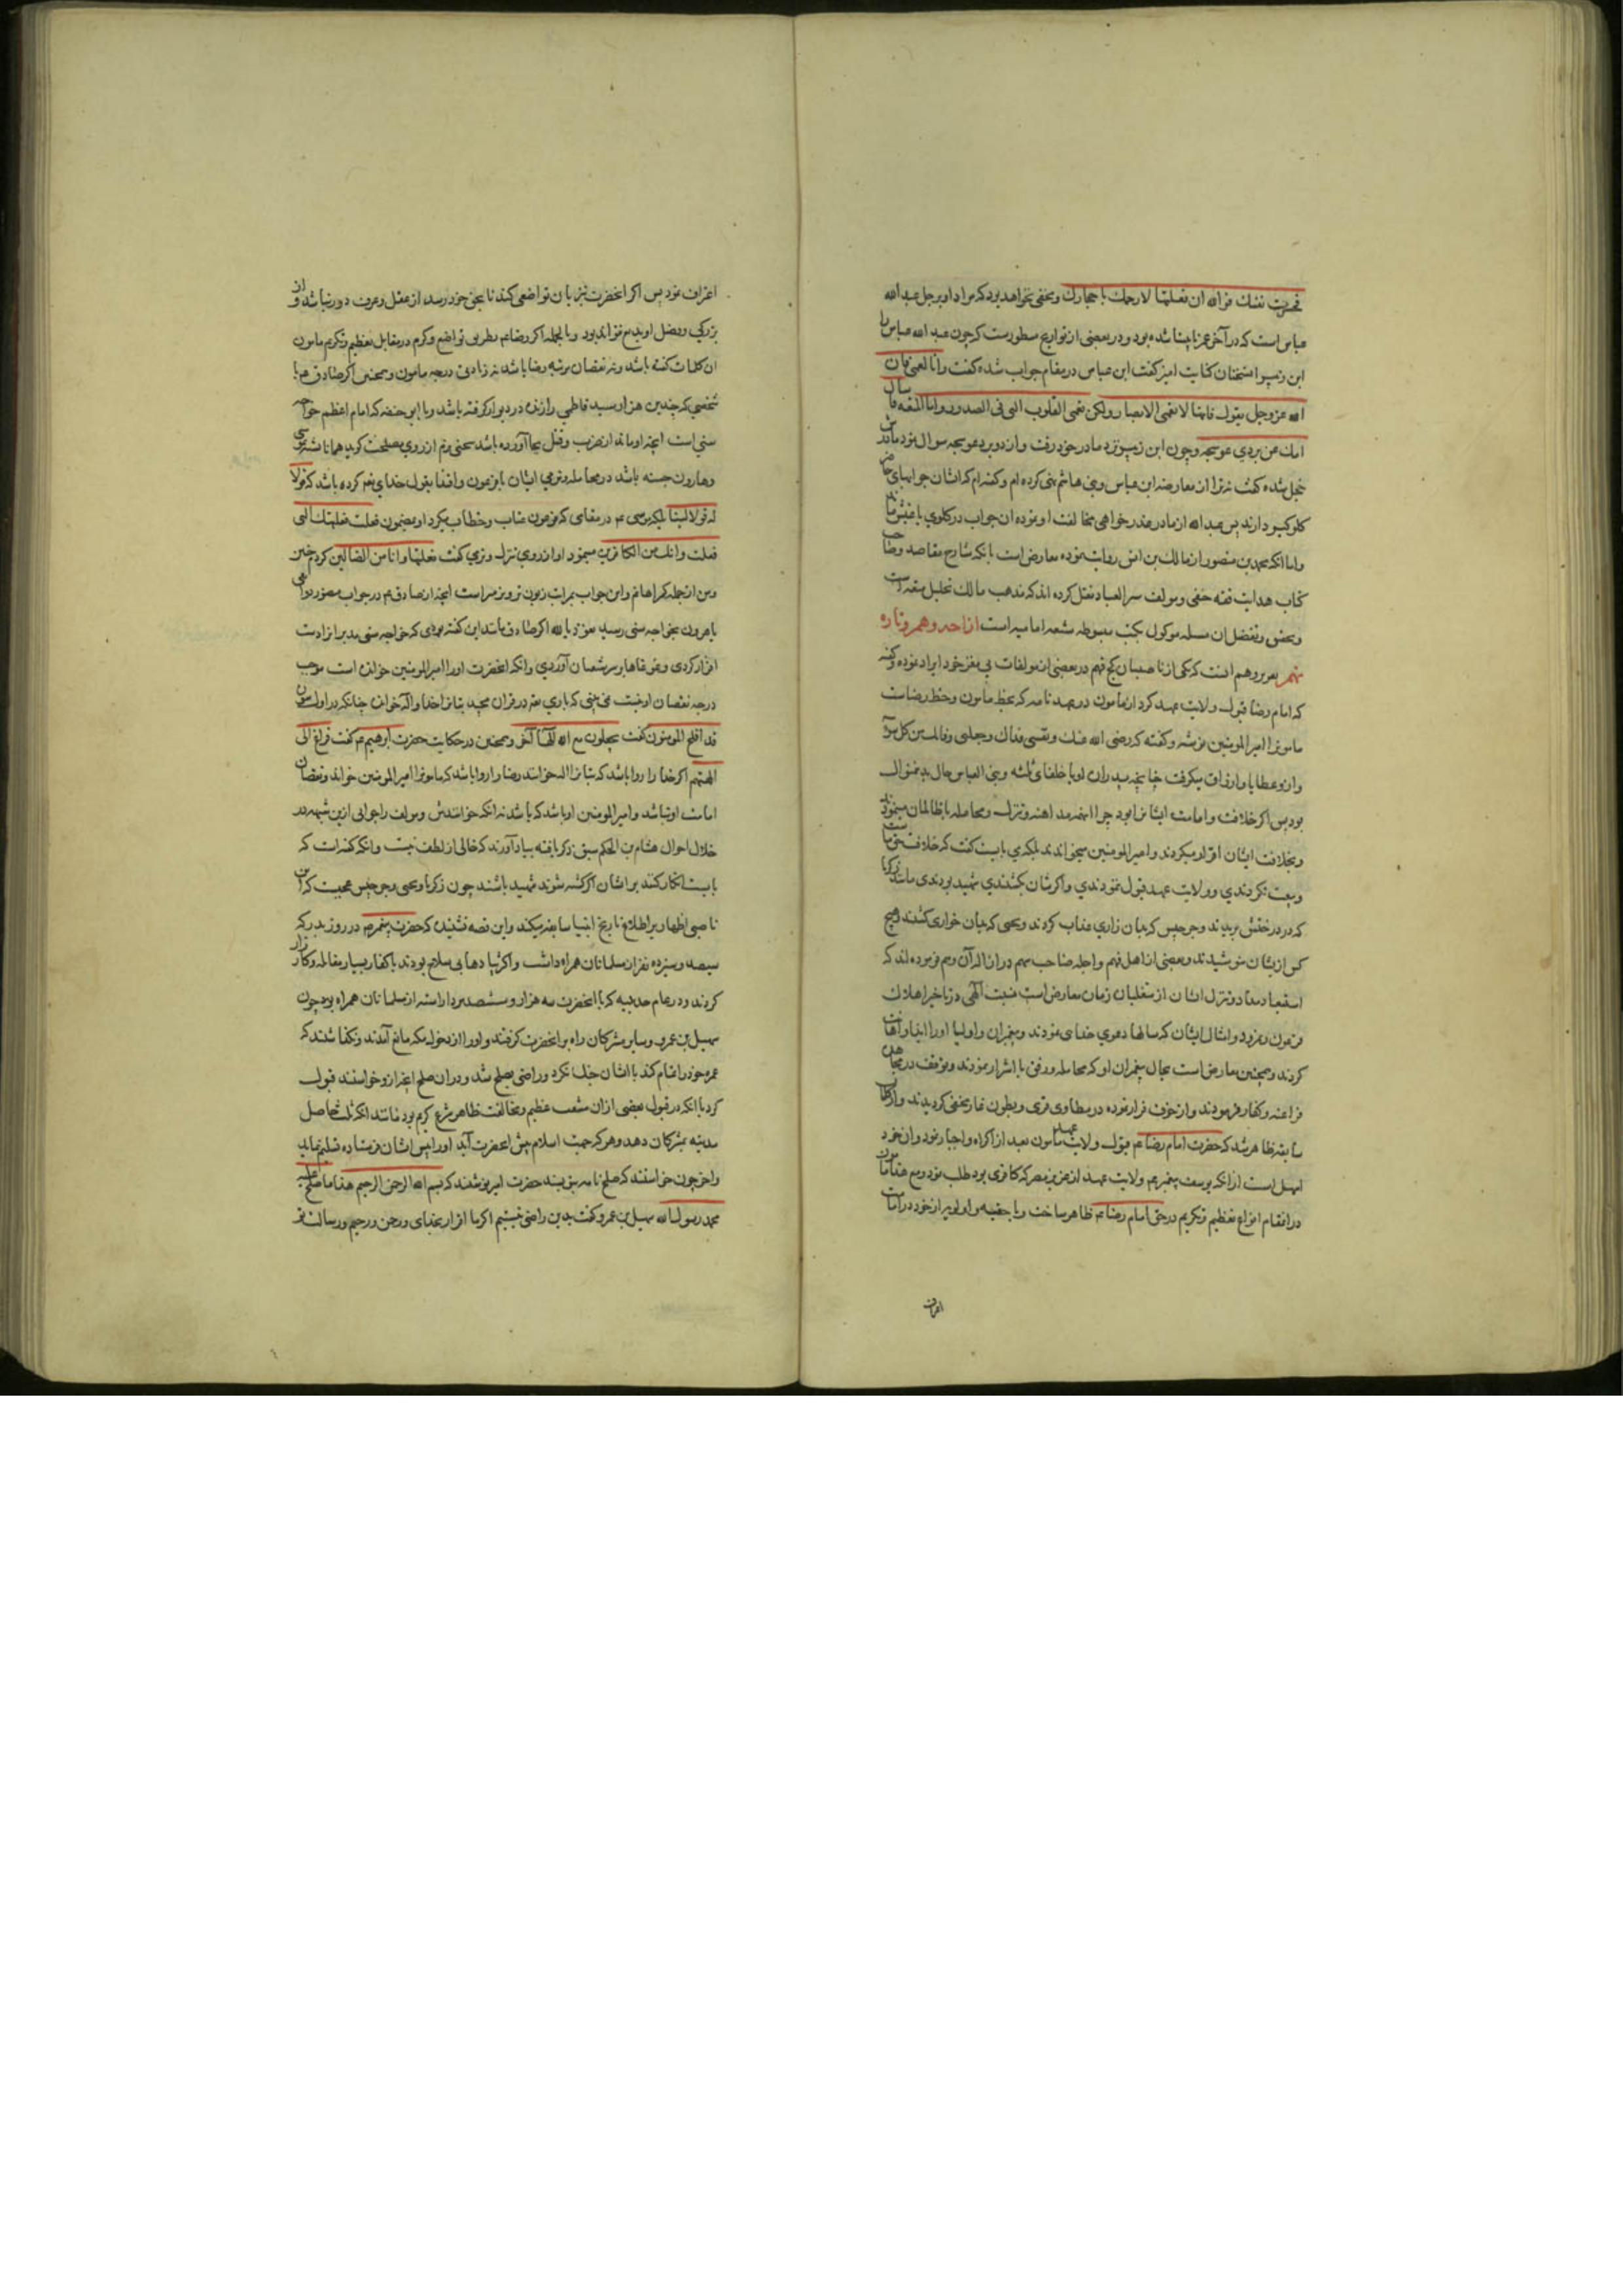 فجرب نفسك فوالله ان فعلتها لارجمنك باحجارك ومخفی نخواهد بود که مراد او برجل عبد الله
عباس است که در آخر عمر نابینا شده بود و در بعضی از تواریخ مسطورست که چون عبد الله عباس را
ابن زبیر استخنان کنایت امیز گفت ابن عباس در مقام جواب شده گفت وانا لعمی فان
الله عزوجل یقول فانها لا تعمی الابصار ولکن تعمی القلوب التی فی الصدور واما المتعه فاسأل
امك عن بردی عوسجه وچون ابن زبیر نزد مادر خود رفت واز دو برد عوسجه سوال نمود مادرش
خجل شده گفت نه ترا از معارضه ابن عباس وبنی هاشم نهی کرده ام وگفته ام که ایشان جوابهای حاضر
کلوکیر دارند پس عبد الله از مادر عذر خواهی مخالفت او نموده ان جواب در کلوی باغیش ماند
واما انکه محمد بن منصور از مالك بن انس روایت نموده معارض است بانکه شارح مقاصد وصاحب
کتاب هدایت فقه حنفی ومولف سر العباد نقل کرده اند که مذهب مالك تحلیل متعه است
وبعض وتفصیل ان مسله موکول بکتب مبسوطه شیعه امامیه است از احد وهم وتاره
نهم بعریر وهم انست که یکی از ناصبیان کج فهم در بعضی از مولفات بی مغز خود ایراد نموده وگفته
که امام رضا قبول ولایت عهد کرد از مامون در عهد نامه که بخط مامون وخط رضاست
مامونرا امیر المومنین نوشته وگفته که رضی الله عنك ونفسی فداك
وازو عطایا وارزاق میگرفت چنانچه پدران او با خلفای ثلثه وبنی العباس حال بدینمنوال
بود پس اگر خلافت وامامت ایشانرا بود چرا اینهمه مداهنه وتنزل ومعامله با ظالمان مینمودند
وبخلافت ایشان اقرار میکردند وامیر المومنین میخواندند بلکه می بایست گفت که خلافت حق ماست
وبیعت نکردندی وولایت عهد قبول ننمودندی واگر شان بکشتندی شهید بودندی مانند زکریا
که در درختش بریدند وجرجیس که بدان زاری عذاب کردند ویحیی که بدان خواری کشتند وهیچ
کس ازیشان نپوشیدند وبعضی از اهل فهم واجله صاحب سهم در ازاله آن وهم فرموده اند که
استبعاد معاد وتنزل ایشان از متغلبان زمان معارض است بنسبت الهی در تاخیر اهلاك
فرعون ونمرود وامثال ایشان که سالها دعوی خدای نمودند وپیغمبران واولیا اورا ایذا واهانت
کردند وهمچنین معارض است بحال پیغمبران او که معامله ورفق با اشرار نمودند وتوقف در مجاهده
فراعنه وکفار فرمودند واز خوف فرار نموده در مطاوی قری وبطون غار مختفی گردیدند وازکلمات
سابقه ظاهر شد که حضرت امام رضا عم قبول ولایت عهد مامون بعد از اکراه واجبار نمود وان خود
اسهل است از انکه یوسف پیغمبر عم ولایت عهد از عزیز مصر که کافری بود طلب نمود ومع هذا مامون
در انمقام انواع تعظیم وتکریم در حق امام رضا عم ظاهر ساخت وباحقیه واولویه از خود در امامت
اعراف
اعتراف نمود پس اگر انحضرت نیز بان تواضعی کند تا بحق خود رسد از عقل وعرف دور نباشد واز
بزرکی وفضل او بدیع نتواند بود وبالجمله اکر رضا عم بطریق تواضع وکرم در مقابل تعظیم وتکریم مامون
ان کلمات گفته باشد ونه نقصان مرتبه رضا باشد نه زیادتی درجه مامون وهمچنین اکر صادق عم با
شخصی که چندین هزار سید فاطمی را زنده در دیوار گرفته باشد وبا ابو حنیفه که امام اعظم خواجه
سنی است ایچه او ماند از ضرب وقتل بجا آورده باشد سخنی نرم از روی مصلحت کوید همانا متبع موسی
وهارون جسته باشد در معامله ونرمی ایشان با فرعون واقتدا بقول خدای تع کرده باشد که فقولا
له قولا لینا بلکه موسی عم در مقامی که فرعون عتاب وخطاب میکرد او بمضمون فعلت فعلتك التی
فعلت وانت من الکافرین مینمود او از روی تنزل ونرمی گفت فعلتها وانا من الضالین کردم چنین
ومن از جمله گمراهانم واین جواب بمراتب زبون تر ونرمتر است ایچه از صادق عم در جواب منصور دوانقی
یا هرون بخواجه سنی رسیده نعوذ بالله اکر صادق مانند این گفته بودی که خواجه سنی مدبر از ارادت
اقرار کردی وغوغاها بر سر شیعیان آوردی وانکه انحضرت اورا امیر المومنین خوانده است موجب
درجه نقصان او نیست نمی بینی که باری تعه در قران مجید بتانرا خدا واله خوانده چنانکه در اول سوره
قد افلح المومنون گفت یجعلون مع الله الها آخر وهمچنین در حکایت حضرت ابرهیم عم گفت فراغ الی
الهتهم اکر خدا را روا باشد که بتانرا اله خواند رضا را روا باشد که مامونرا امیر المومنین خواند ونقصان
امامت او نباشد وامیر المومنین او باشد که باشد نه انکه خوانندش ومولف را جوابی ازین شبهه در
خلال احوال هشام بن الحکم سبق ذکر یافته بیاد آورند که خالی از لطف نیست وانکه گفته است که
بایست انکار کنند بر ایشان اگر کشته شوند شهید باشند چون زکریا ویحیی وجرجیس عجبست که این
ناصبی اظهار بر اطلاع تاریخ انبیا سابقه میکند واین قصه نشنیده که حضرت پیغمبر عم در روز بدر که
سیصد وسیزده نفر از مسلمانان همراه داشت واکثر پیادهای بی سلاح بودند با کفار بسیار مقاتله وکارزار
کردند ودر عام حدیبیه که با انحضرت سه هزار وششصد مرد اراسته از مسلمانان همراه بود چون
سهیل بن عمرو وسایر مشرکان راه بر انحضرت گرفتند واورا از دخول مکه مانع آمدند ونگذاشتند که
عمره خود را تمام کند با ایشان جنك نکرد وراضی بصلح شد ودر ان صلح اغراز وخواستند قبول
کرد با انکه در قبول بعضی ازان منقصت عظیم ومخالفت ظاهر شرع کریم بود مانند انکه ثلث حاصل
مدینه بمشرکان دهد وهر که جهت اسلام پیش انحضرت آید اورا پس ایشان فرستاده تسلیم نماید
واخر چون خواستند که صلح نامه بنویسند حضرت امیر نوشتند که بسم الله الرحمن الرحیم هذا ما صالح علیه
محمد رسول الله سهیل بن عمرو گفت بدین راضی نیستیم اکر ما اقرار بخدای ورحمن ورحیم ورسالت تو